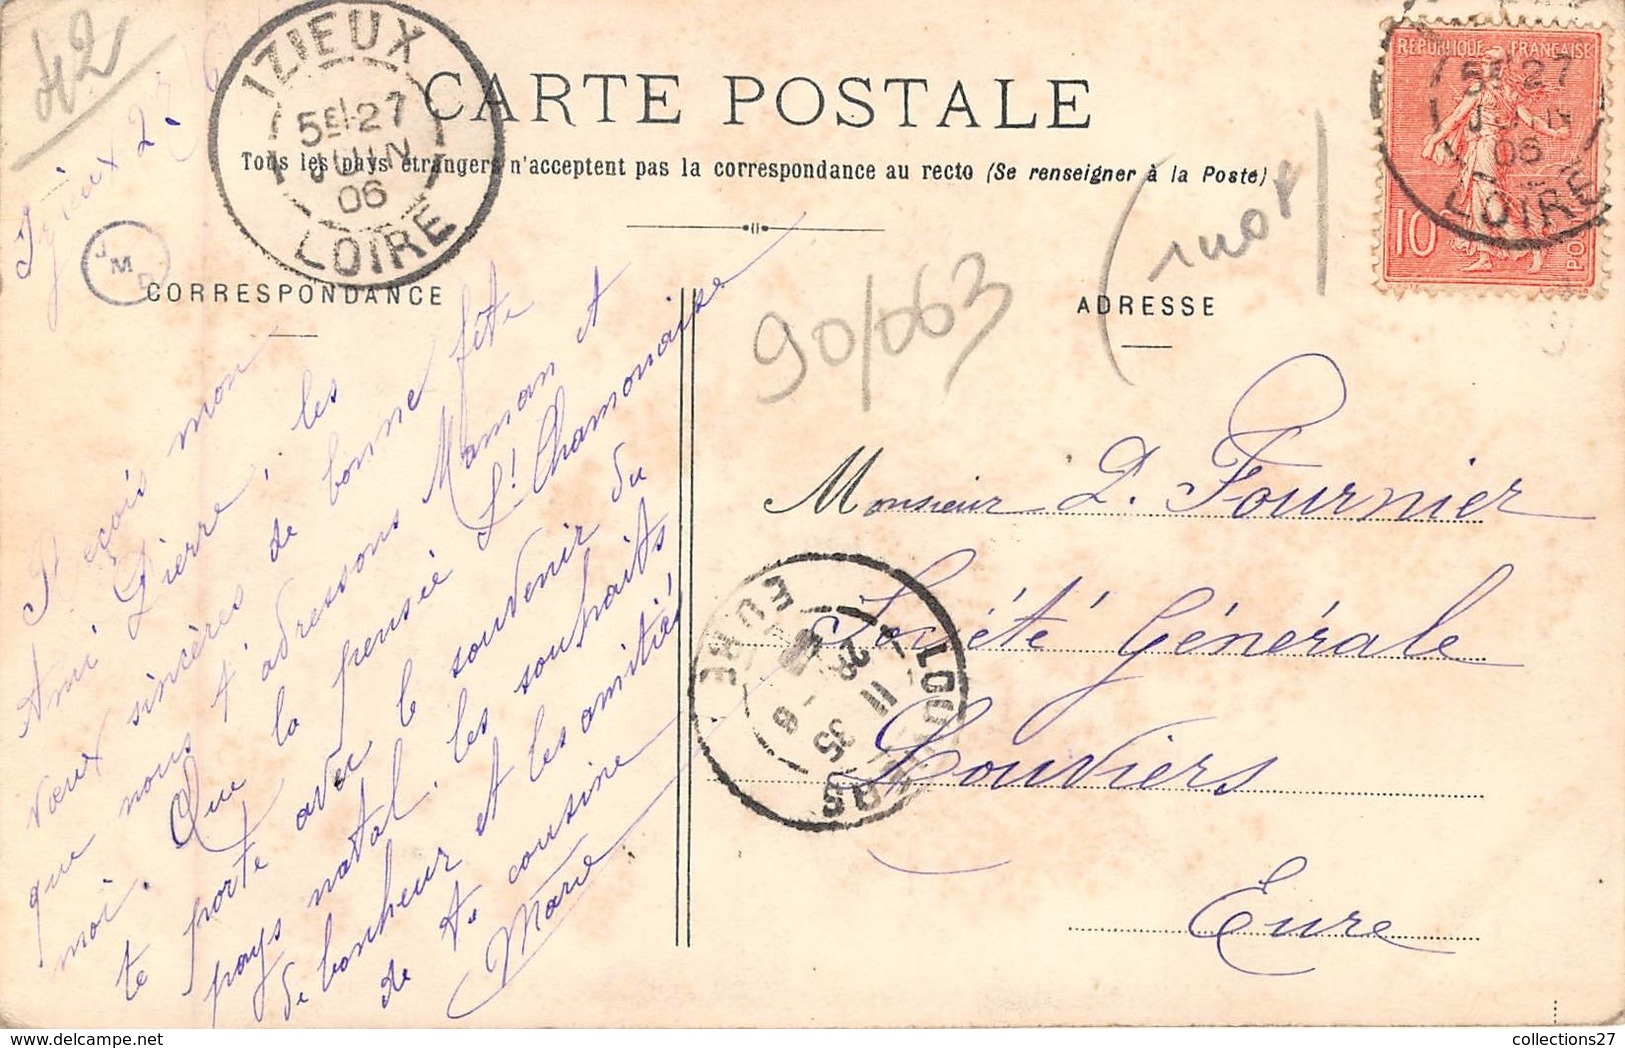 42
IZIEUX
5E 27
JUIN
06
LOIRE
CARTE POSTALE
Tous les pays étrangers n'acceptent pas la correspondance au recto (Se renseigner à la Poste)
REPUBLIQUE FRANÇAISE
10
POSTES
5E 27
JUIN
06
LOIRE
JMB
CORRESPONDANCE
ADRESSE
90/063
Izieux 27
Reçois mon
Ami Pierre, les
vœux sincères de bonne fête
que nous t'adressons Maman et
moi. Que la pensée St Chamonaise
te porte avec le souvenir du
pays natal, les souhaits
de bonheur et les amitiés
de ta cousine
Marie
Monsieur P. Fournier
Société Générale
Louviers
Eure
LOUVIERS
EURE
11 35
28 - 6
collections27